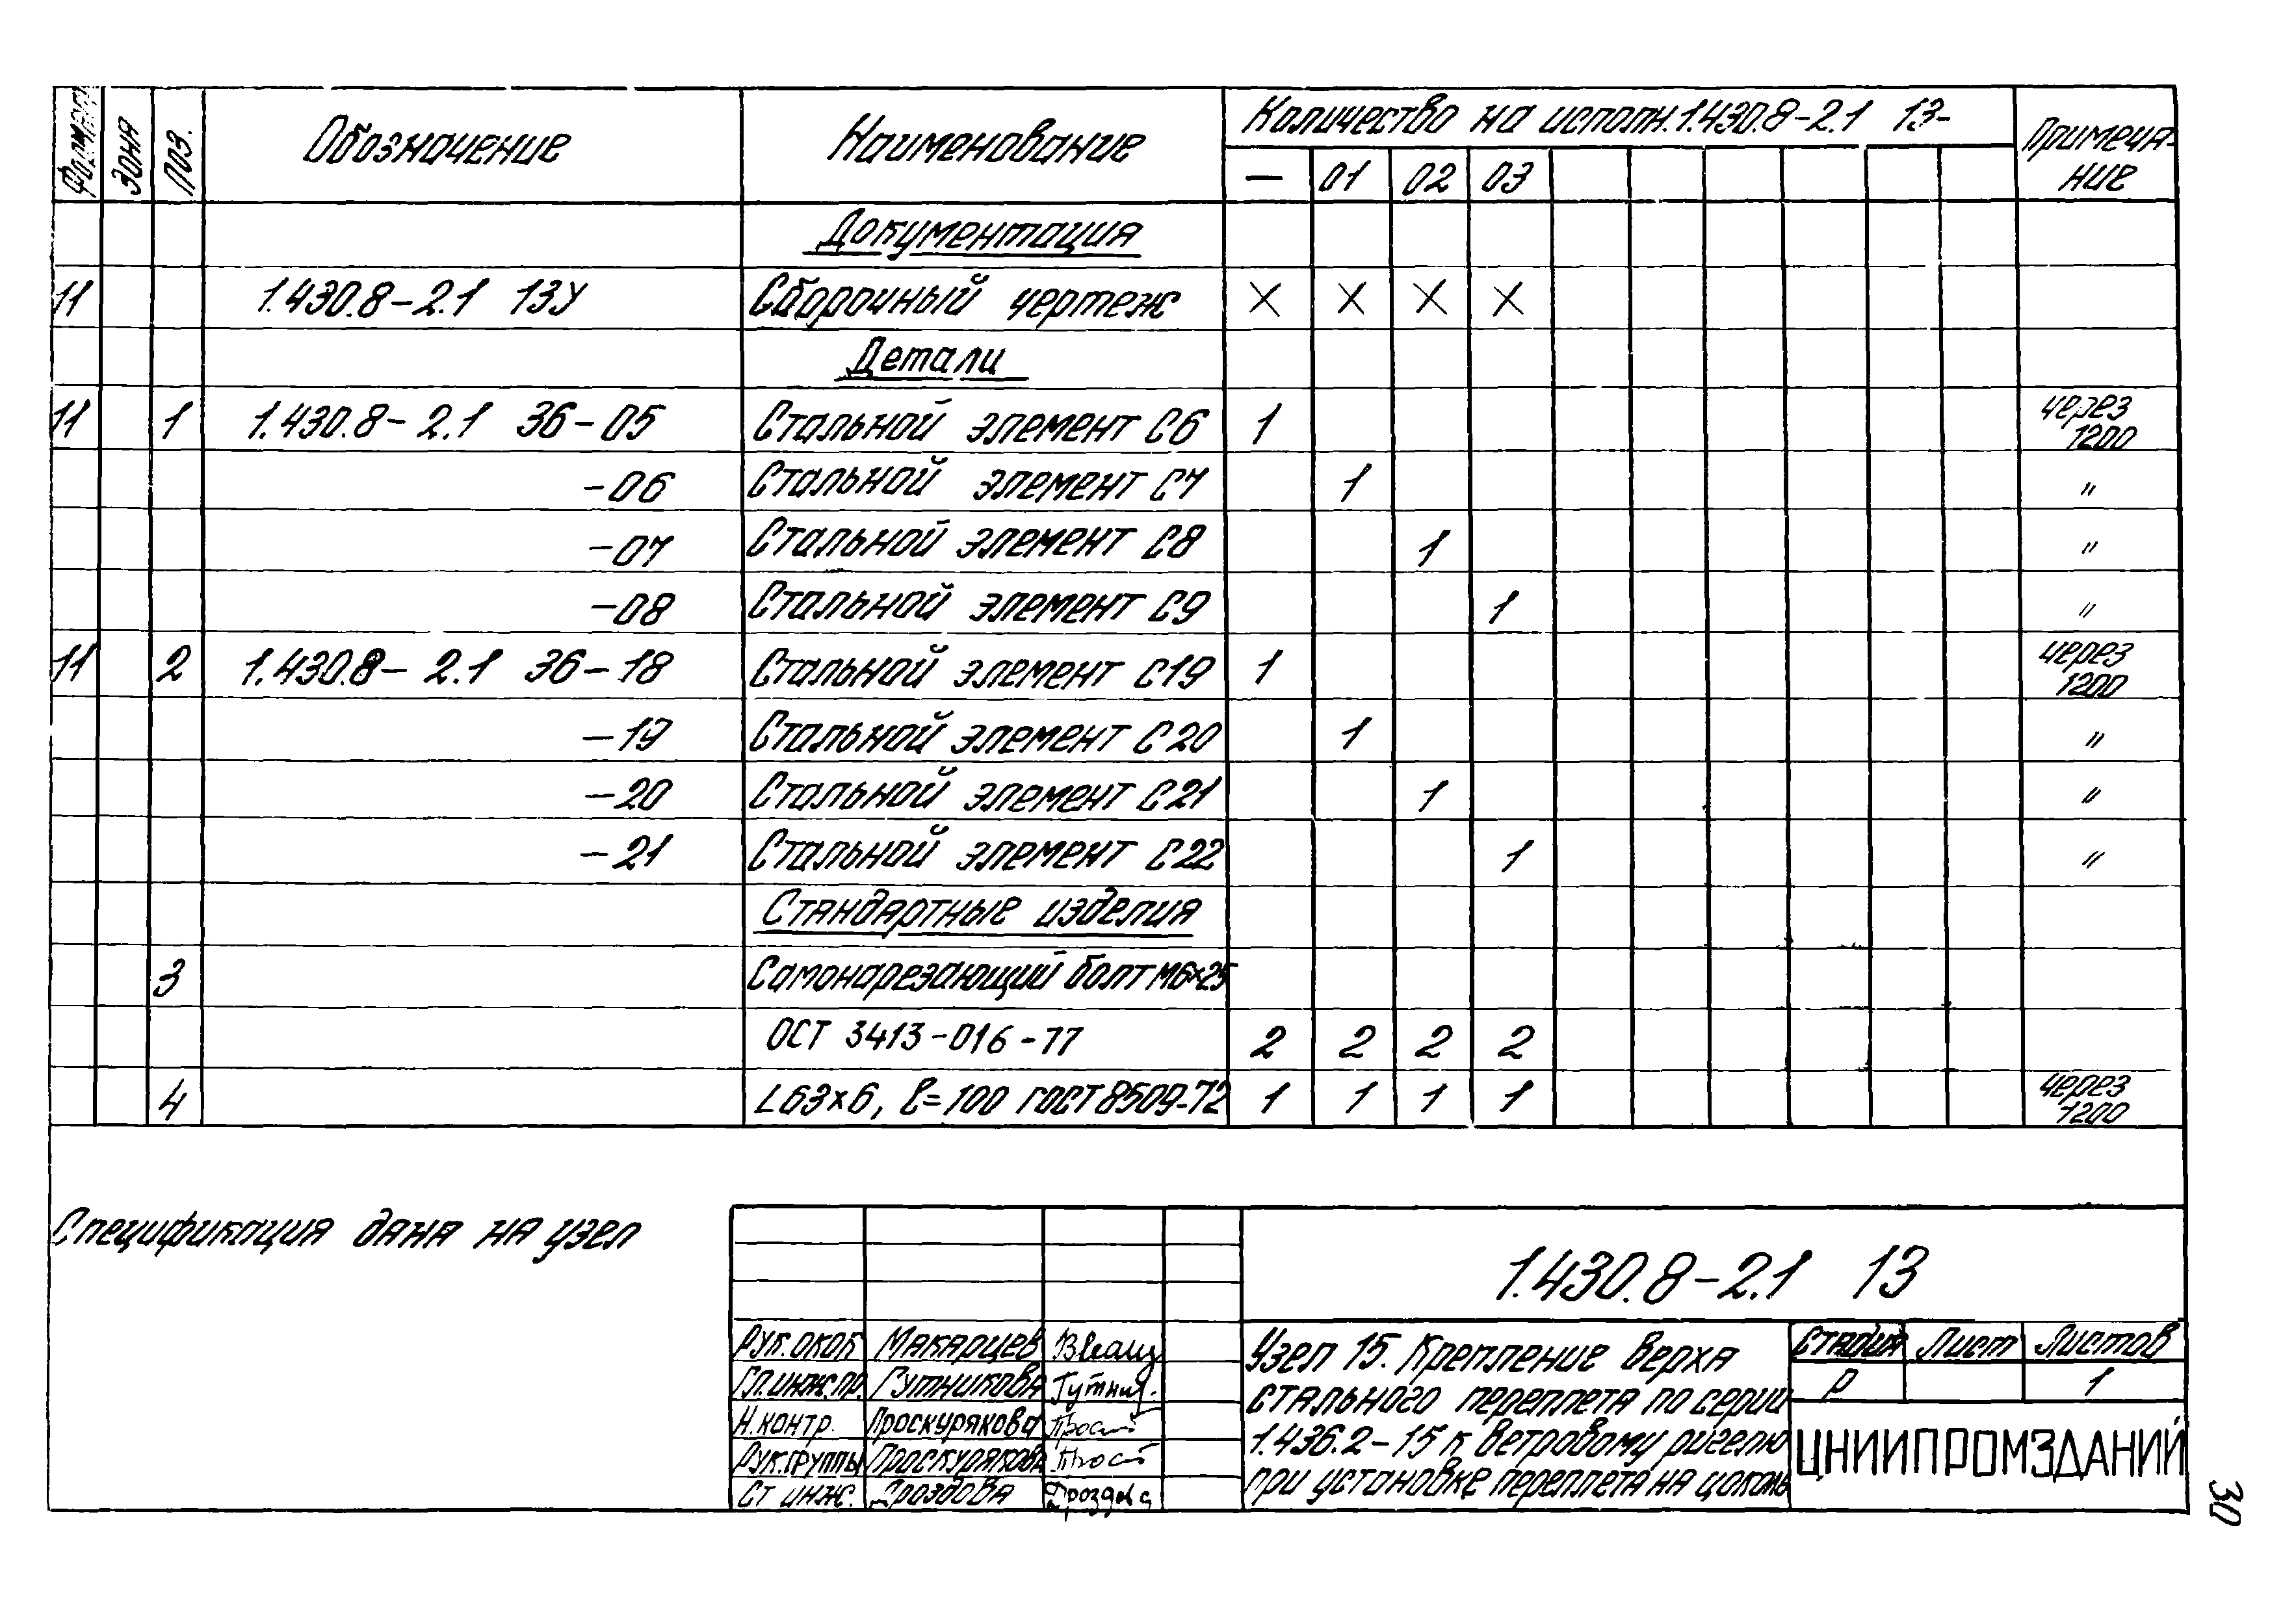 Формат Зона Поз. Обозначение Наименование Количество на исполн. 1.430.8-2.1 13- Примеча-
ние
— 01 02 03
Документация
11 1.430.8-2.1 13У Сборочный чертеж X X X X
Детали
11 1 1.430.8-2.1 36-05 Стальной элемент С6 1 через
1200
-06 Стальной элемент С7 1 "
-07 Стальной элемент С8 1 "
-08 Стальной элемент С9 1 "
11 2 1.430.8-2.1 36-18 Стальной элемент С19 1 через
1200
-19 Стальной элемент С20 1 "
-20 Стальной элемент С21 1 "
-21 Стальной элемент С22 1 "
Стандартные изделия
3 Самонарезающий болт М6×25
ОСТ 3413-016-77 2 2 2 2
4 L63×6, ℓ=100 ГОСТ 8509-72 1 1 1 1 через
1200
Спецификация дана на узел
1.430.8-2.1 13
Рук. окоб Макарцев
Гл.инж.пр. Гутникова Гутник.
Н.контр. Проскурякова
Рук.группы Проскурякова
Ст инж. Дроздова Дроздова
Узел 15. Крепление верха
стального переплета по серии
1.436.2-15 к ветровому ригелю
при установке переплета на цоколь
Стадия Лист Листов
Р 1
ЦНИИПРОМЗДАНИЙ
30